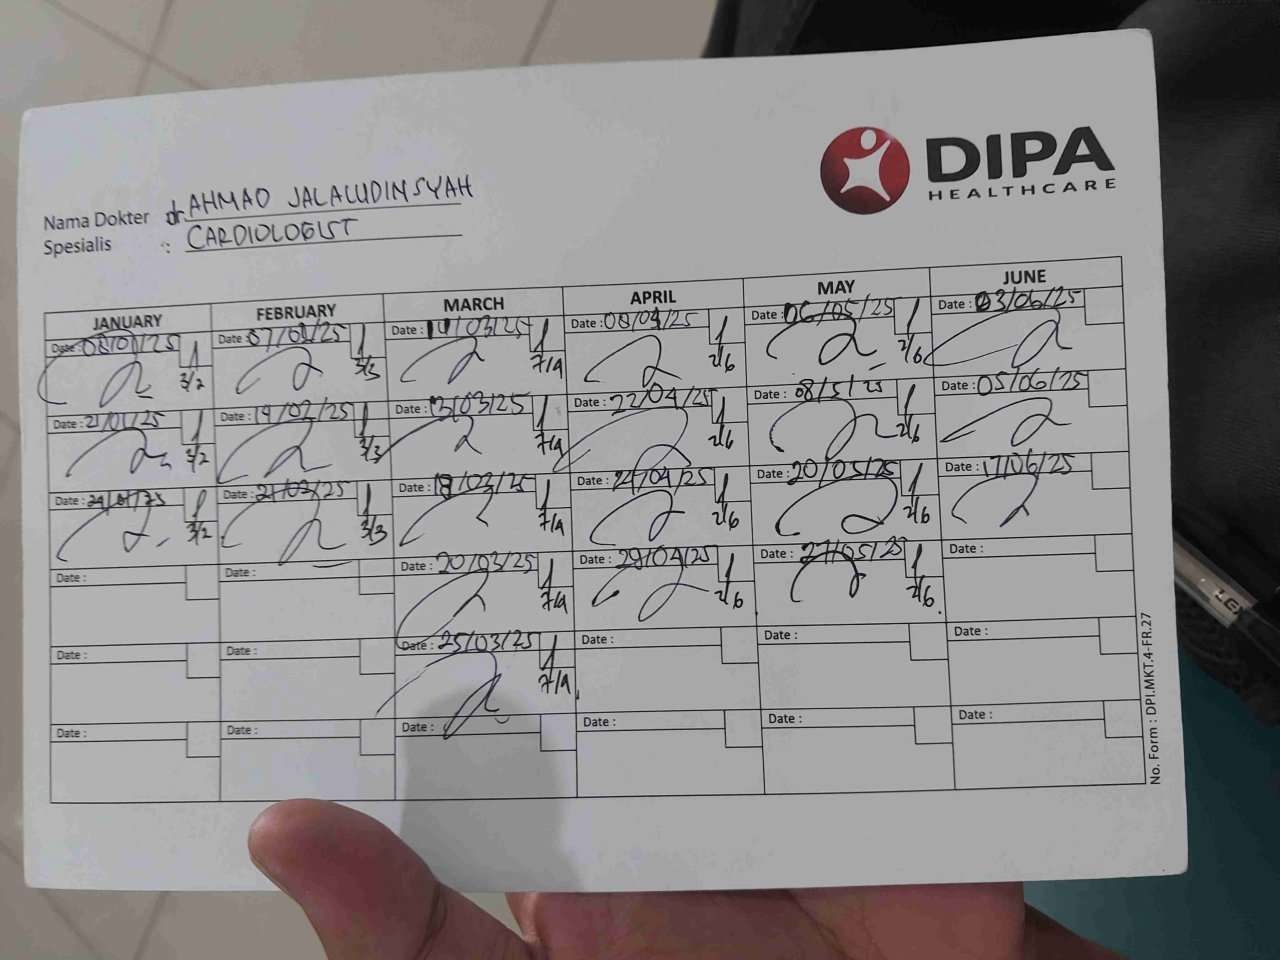 DIPA
HEALTHCARE
Nama Dokter dr. AHMAD JALALUDINSYAH
Spesialis : CARDIOLOGIST
JANUARY FEBRUARY MARCH APRIL MAY JUNE
Date : 08/01/25 Date : 07/02/25 Date : 11/03/25 Date : 08/04/25 Date : 06/05/25 Date : 03/06/25
3/2 3/3 7/4 2/6 2/6
Date : 21/01/25 Date : 14/02/25 Date : 13/03/25 Date : 22/04/25 Date : 08/5/25 Date : 05/06/25
3/2 3/3 7/4 2/6 2/6
Date : Date : 21/02/25 Date : 18/03/25 Date : Date : 20/05/25 Date : 17/06/25
3/2 3/3 7/4 2/6 2/6
Date : Date : Date : 20/03/25 Date : 29/04/25 Date : 27/05/25 Date :
7/4 2/6 2/6
Date : Date : Date : 25/03/25 Date : Date : Date :
7/4
Date : Date : Date : Date : Date : Date :
No. Form : DPI.MKT.4-FR.27